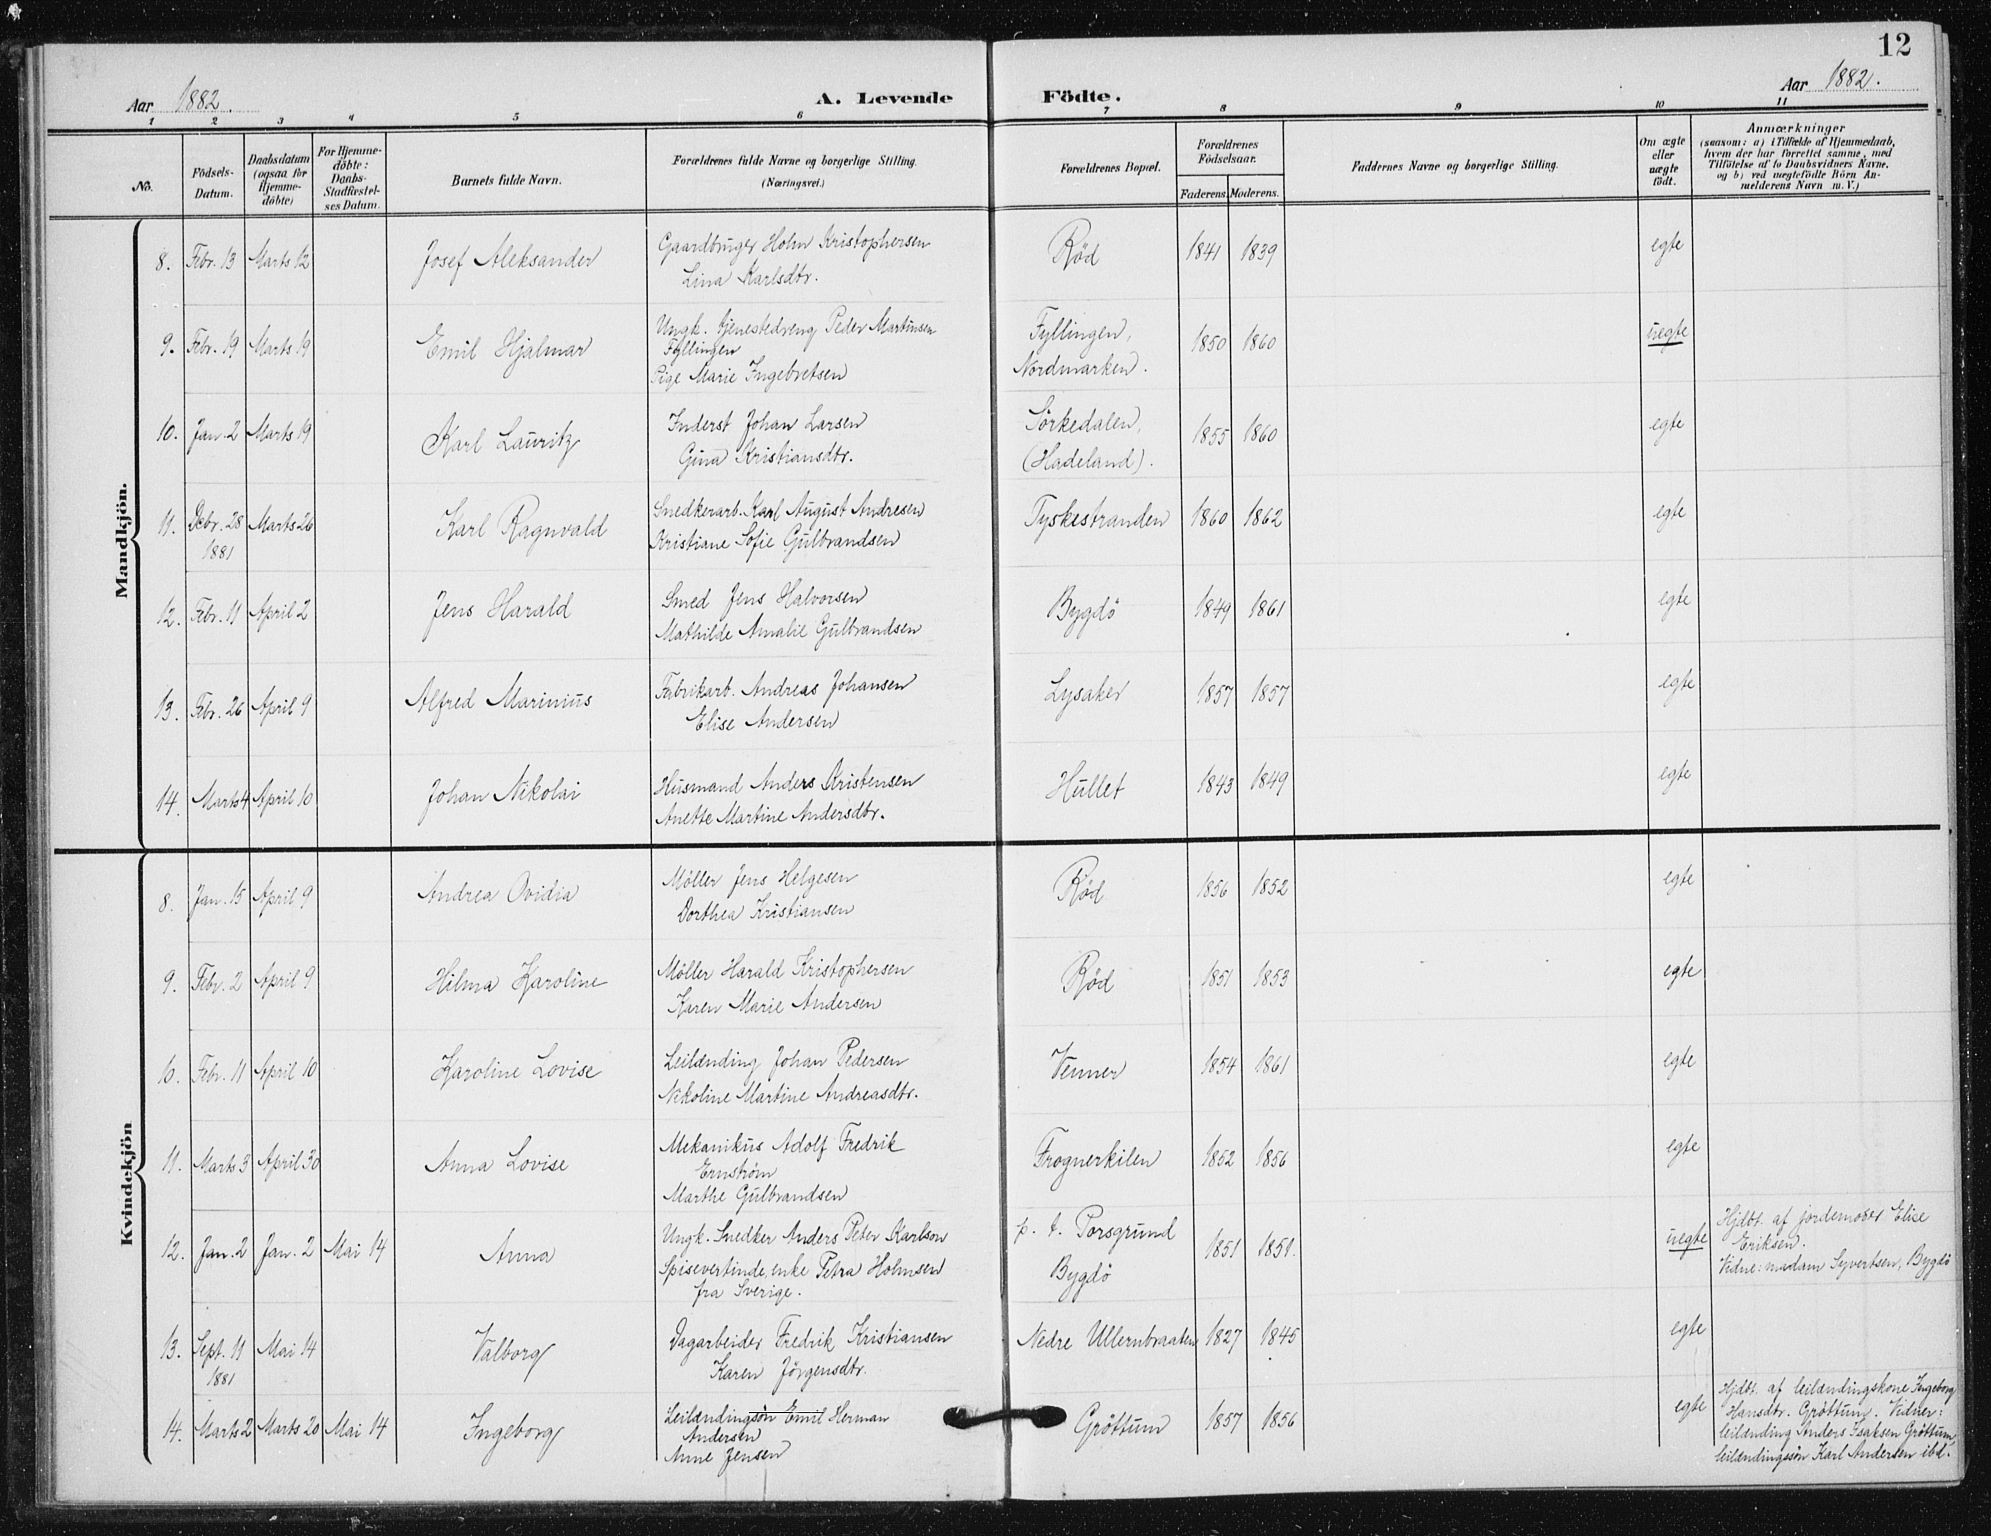 12
Aar 1882.
A. Levende Födte.
Aar 1882.
1 2 3 4 5 6 7 8 9 10 11
No.
Födsels-Datum.
Daabsdatum (ogsaa for Hjemme-döbte)
For Hjemme-döbte: Daabs-Stadfæstel-ses Datum.
Barnets fulde Navn.
Forældrenes fulde Navne og borgerlige Stilling.
(Næringsvei.)
Forældrenes Bopæl.
Forældrenes Födselsaar.
Faderens. Moderens.
Faddernes Navne og borgerlige Stilling.
Om ægte eller uægte födt.
Anmærkninger
(saasom: a) i Tilfælde af Hjemmedaab,
hvem der har forrettet samme, med
Tilföielse af to Daabsvidners Navne.
og b) ved uægtefödte Börn An-
melderens Navn m. V.)
Mandkjön.
8. Febr. 13 Marts 12 Josef Aleksander Gaardbruger Holm Kristophersen Röd 1841 1839 egte
Lina Karlsdtr.
9. Febr. 19 Marts 19 Emil Hjalmar Ungk. tjenestedreng Peder Martinsen Fyllingen, 1850 1860 uegte
Fyllingen
Pige Marie Ingebretsen Nordmarken.
10. Jan. 2 Marts 19 Karl Lauritz Inderst Johan Larsen Sörkedalen, 1855 1860 egte
Gina Kristiansdtr. (Hadeland).
11. Debr. 28 Marts 26 Karl Ragnvald Snedkerarb. Karl August Andresen Tyskestranden 1860 1862 egte
1881 Kristiane Sofie Gulbrandsen
12. Febr. 11 April 2 Jens Harald Smed Jens Halvorsen Bygdö 1849 1861 egte
Mathilde Amalie Gulbrandsen
13. Febr. 26 April 9 Alfred Marinius Fabrikarb. Andreas Johansen Lysaker 1857 1857 egte
Elise Andersen
14. Marts 4 April 10 Johan Nikolai Husmand Anders Kristensen Hullet 1843 1849 egte
Anette Martine Andersdtr.
Kvindekjön
8. Jan. 15 April 9 Andrea Ovidia Möller Jens Helgesen Röd 1856 1852 egte
Dorthea Kristiansen
9. Febr. 2 April 9 Hilma Karoline Möller Harald Kristophersen Röd 1851 1853 egte
Karen Marie Andersen
10. Febr. 11 April 10 Karoline Lovise Leilænding Johan Pedersen Venner 1854 1861 egte
Nikoline Martine Andreasdtr.
11. Marts 3 April 30 Anna Lovise Mekanikus Adolf Fredrik Frognerkilen 1852 1856 egte
Ernström
Marthe Gulbrandsen
12. Jan. 2 Jan. 2 Mai 14 Anna Ungk. Snedker Anders Peter Karlson p. t. Porsgrund 1851 1851. uegte Hjdbt. af jordemoder Elise
Eriksen.
Spisevertinde, enke Petra Holmsen Bygdö Vidne: madam Syvertsen, Bygdö
fra Sverige.
13. Sept. 11 Mai 14 Valborg Dagarbeider Fredrik Kristiansen Nedre Ullernbraaten 1827 1845 egte
1881 Karen Jörgensdtr.
14. Marts 2 Marts 20 Mai 14 Ingeborg Leilændingsön Emil Herman Gröttum 1857 1856 egte Hjdbt. af leilændingskone Ingeborg
Andersen Hansdtr. Gröttum. Vidner:
Anne Jensen leilænding Anders Isaksen Gröttum,
leilændingsön Karl Andersen ibd.